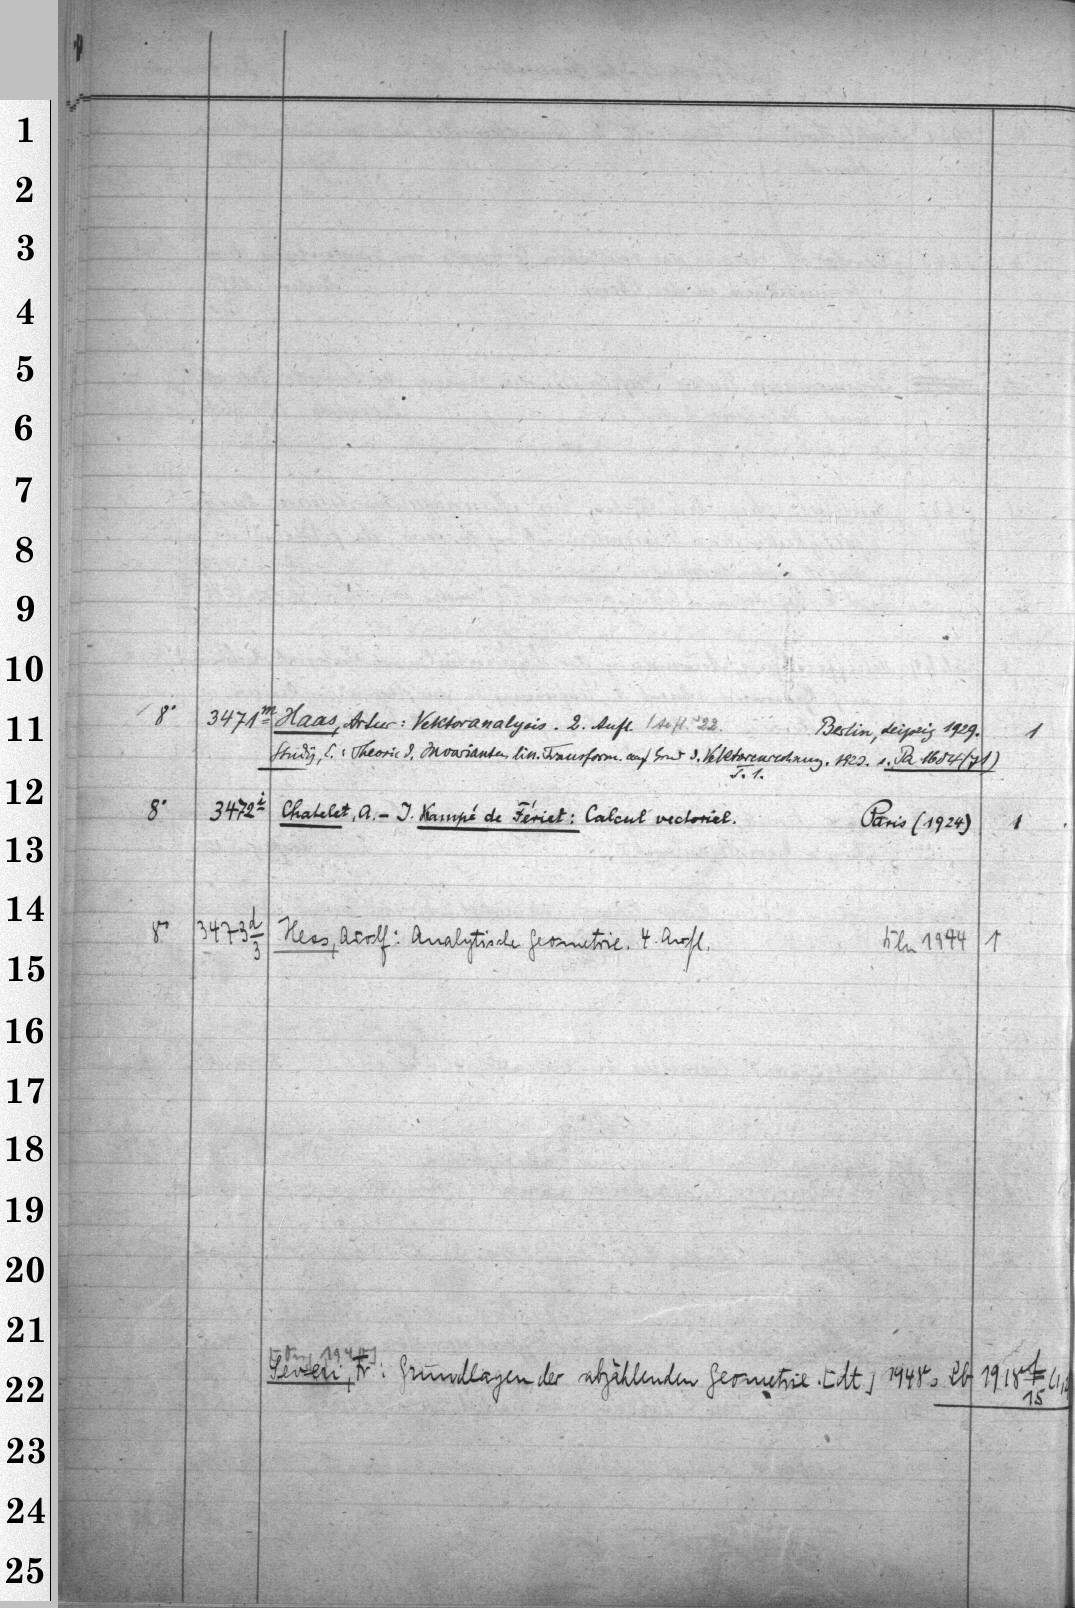 1
2
3
4
5
6
7
8
9
10
11
12
13
14
15
16
17
18
19
20
21
22
23
24
25
8° 3471m Haas, Artur: Vektoranalysis. 2. Aufl. 1 Aufl. '22. Berlin, Leipzig 1929. 1
Study, E.: Theorie d. Invarianten lin. Transform. auf Grund d. Vektorenrechnung. 1922. s. Pa 1684(71)
T. 1.
8° 3472i Chatelet, A. - J. Kampé de Fériet: Calcul vectoriel. Paris (1924) 1
8° 3473 d/3 Hess, Adolf: Analytische Geometrie. 4. Aufl. 1944 1
Severi, Fr: Grundlagen der abzählenden Geometrie. [dt] 1948 1918 f/15